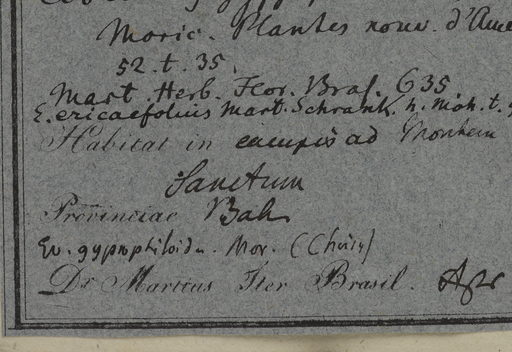 Moric. Plantes nouv. d'Ame
52. t. 35.
Mart. Herb. Flor. Bras. 635.
E. ericaefolius Mart. Schrank. n. Mon. t.
Habitat in campis ad Montem
Sanctum
Provinciae Bah.
Ev. gypsophiloides Mor. (Choisy)
Dr Martius Iter Brasil.